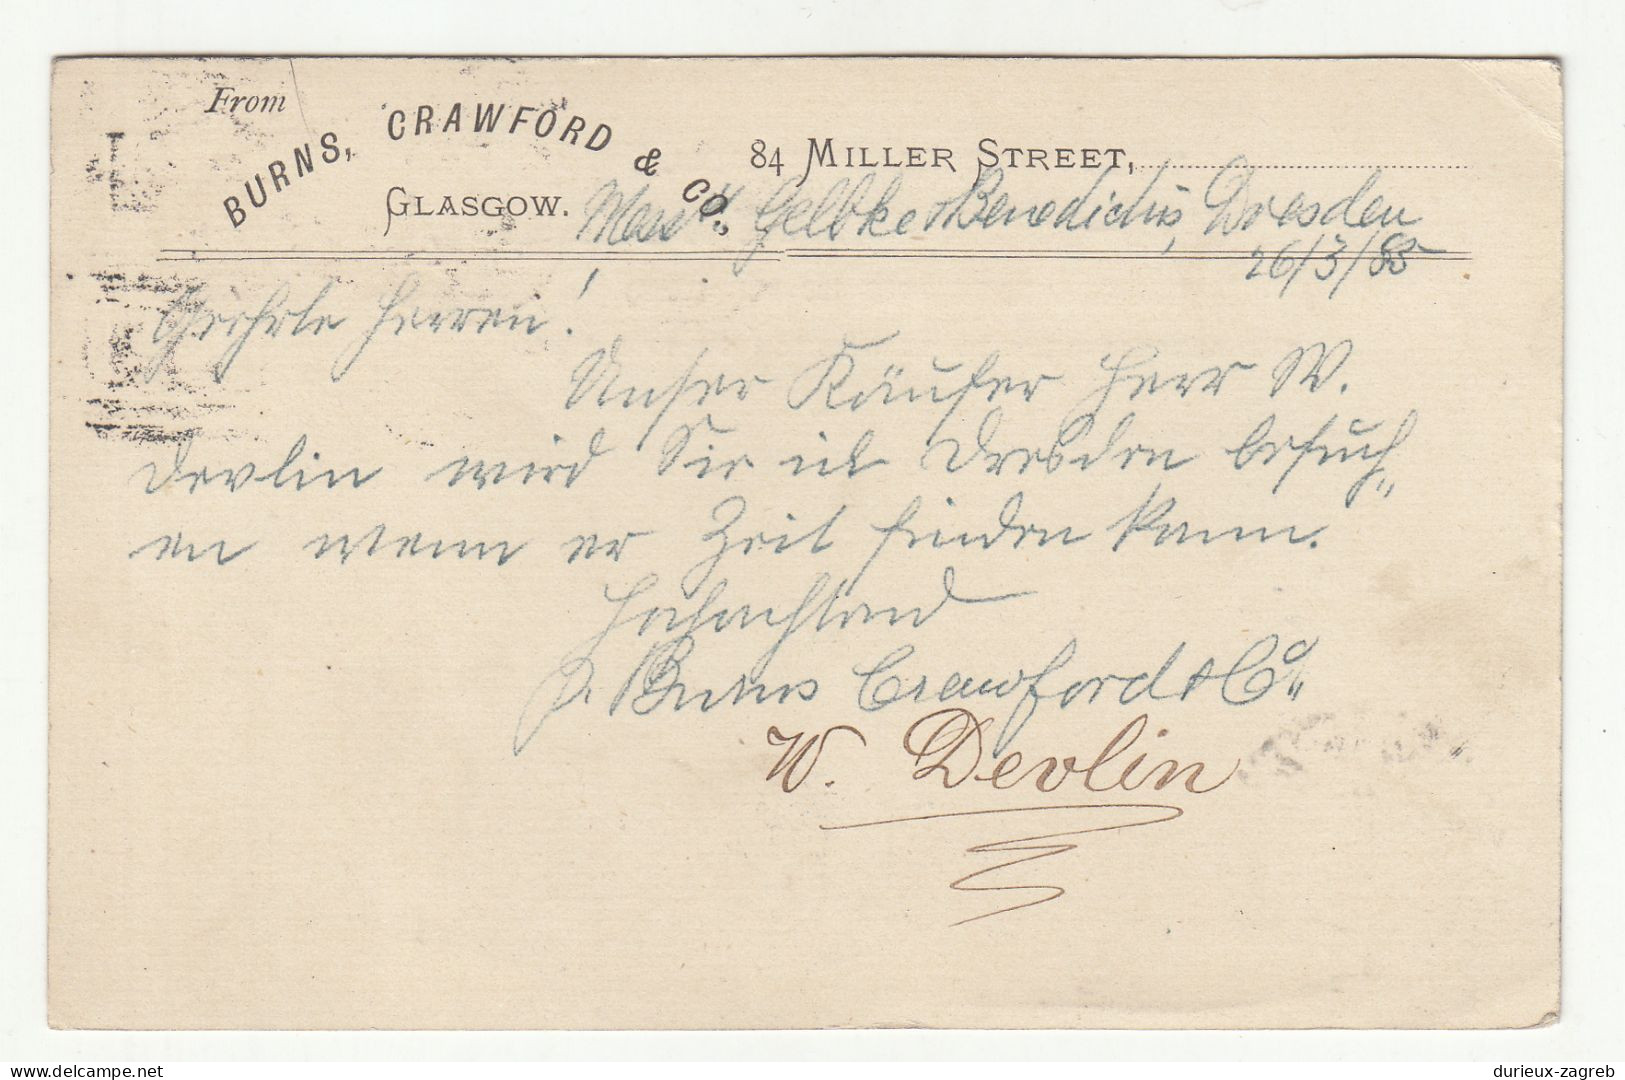 From
BURNS, CRAWFORD & CO.,
84 MILLER STREET,
GLASGOW.
Messrs Gelbke & Benedictus, Dresden
26/3/85
Geehrte Herren!
Unser Käufer Herr W.
Devlin wird Sie in Dresden besuch„
en wenn er Zeit finden kann.
Hochachtend
p. Burns Crawford & Co
W. Devlin
durieux-zagreb